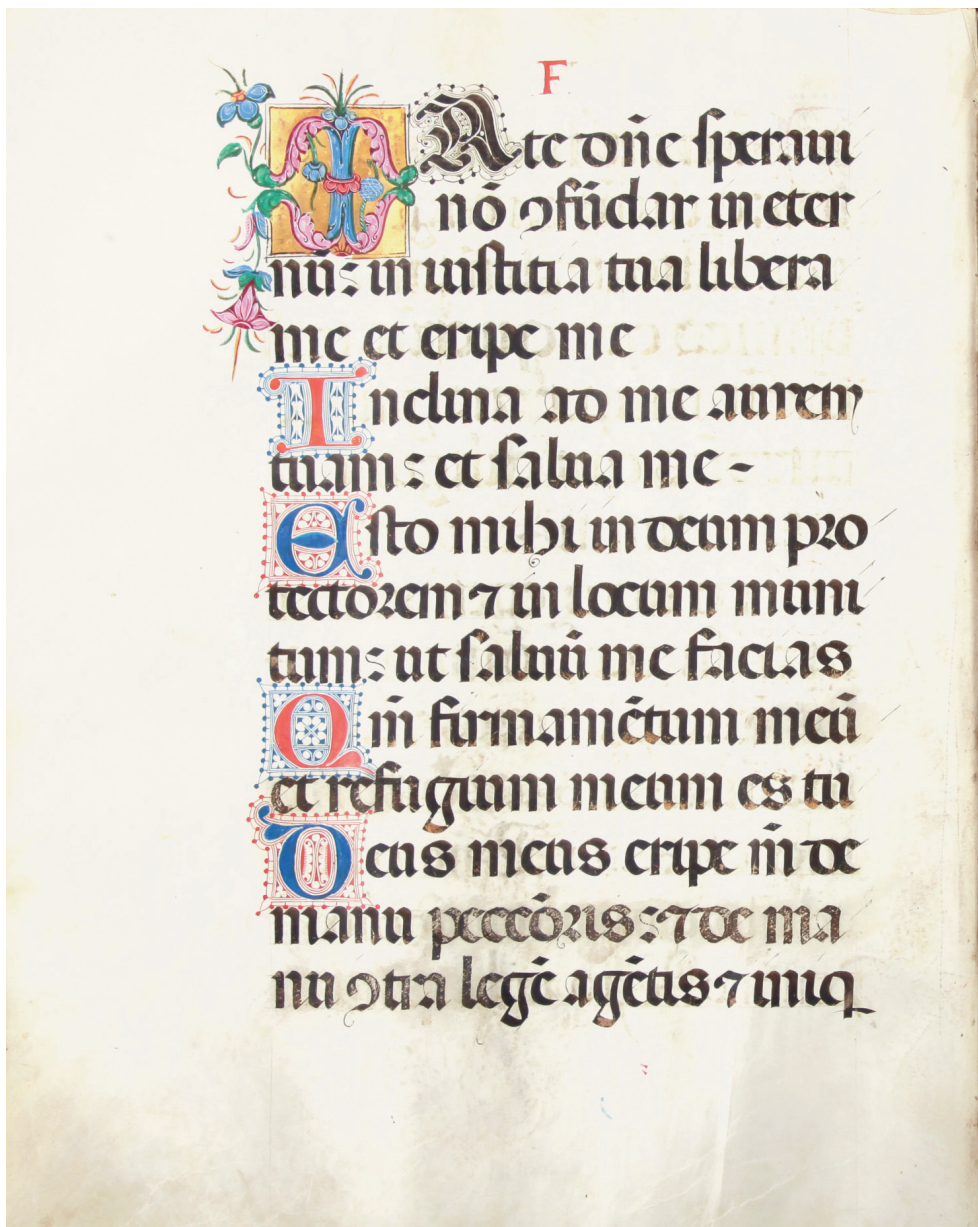 F
IN te dñe speraui
nō ꝯfūdar in eter
nū: in iustitia tua libera
me et eripe me
Inclina ad me aurem
tuam: et salua me -
Esto mihi in deum pro
tectorem ⁊ in locum muni
tum: ut saluū me facias
Qm̄ firmamētum meū
et refugium meum es tu
Deus meus eripe m̄ de
manu peccōris: ⁊ de ma
nu ꝯtra legē agētis ⁊ iniq